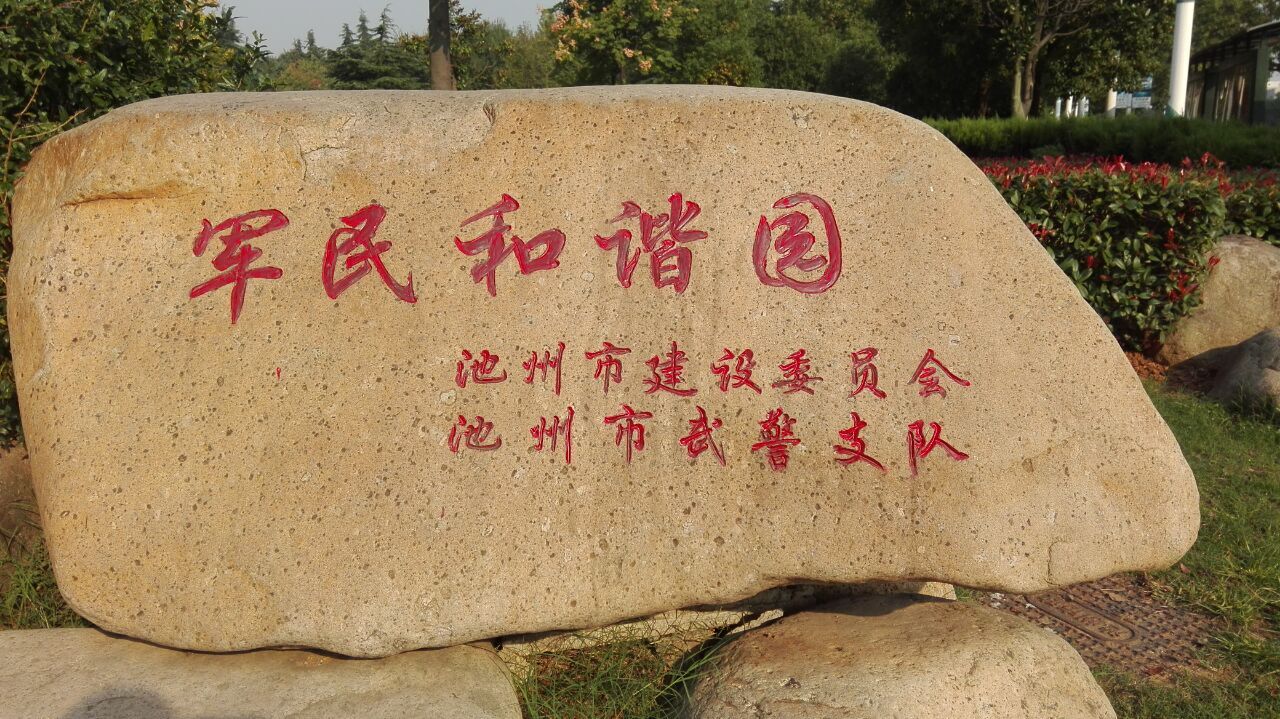 军民和谐园
池州市建设委员会
池州市武警支队